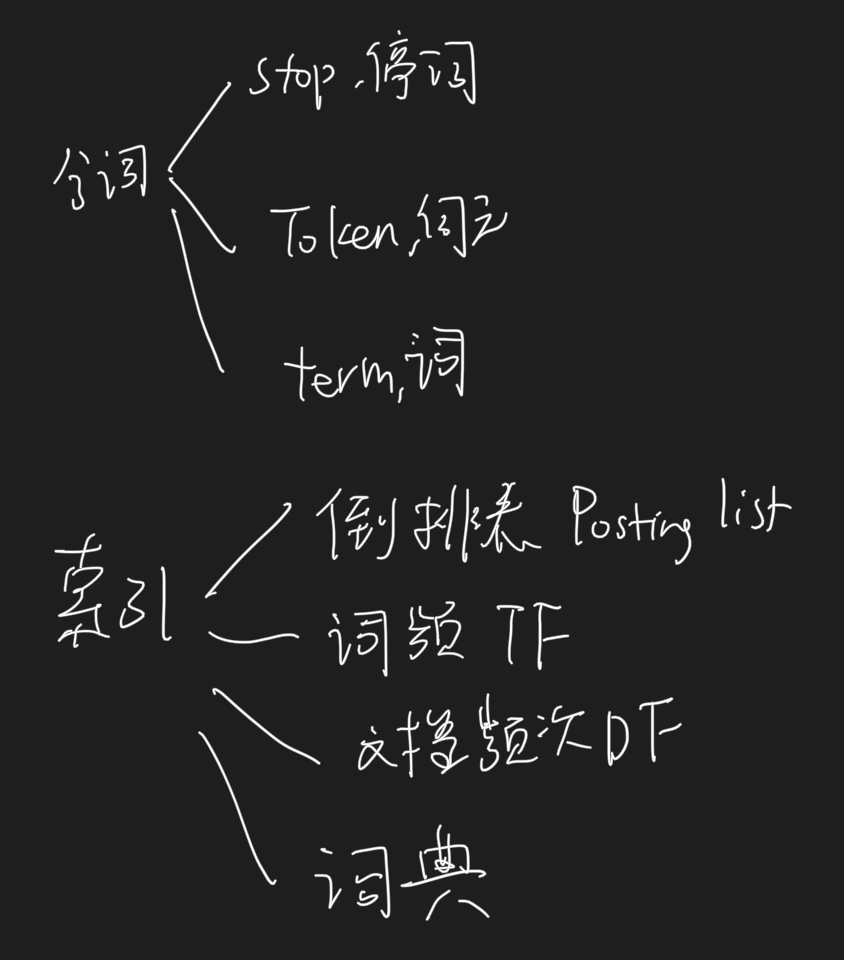 stop,停词
分词
Token,词元
term,词
倒排表 Posting list
索引
词频 TF
文档频次 DF
词典